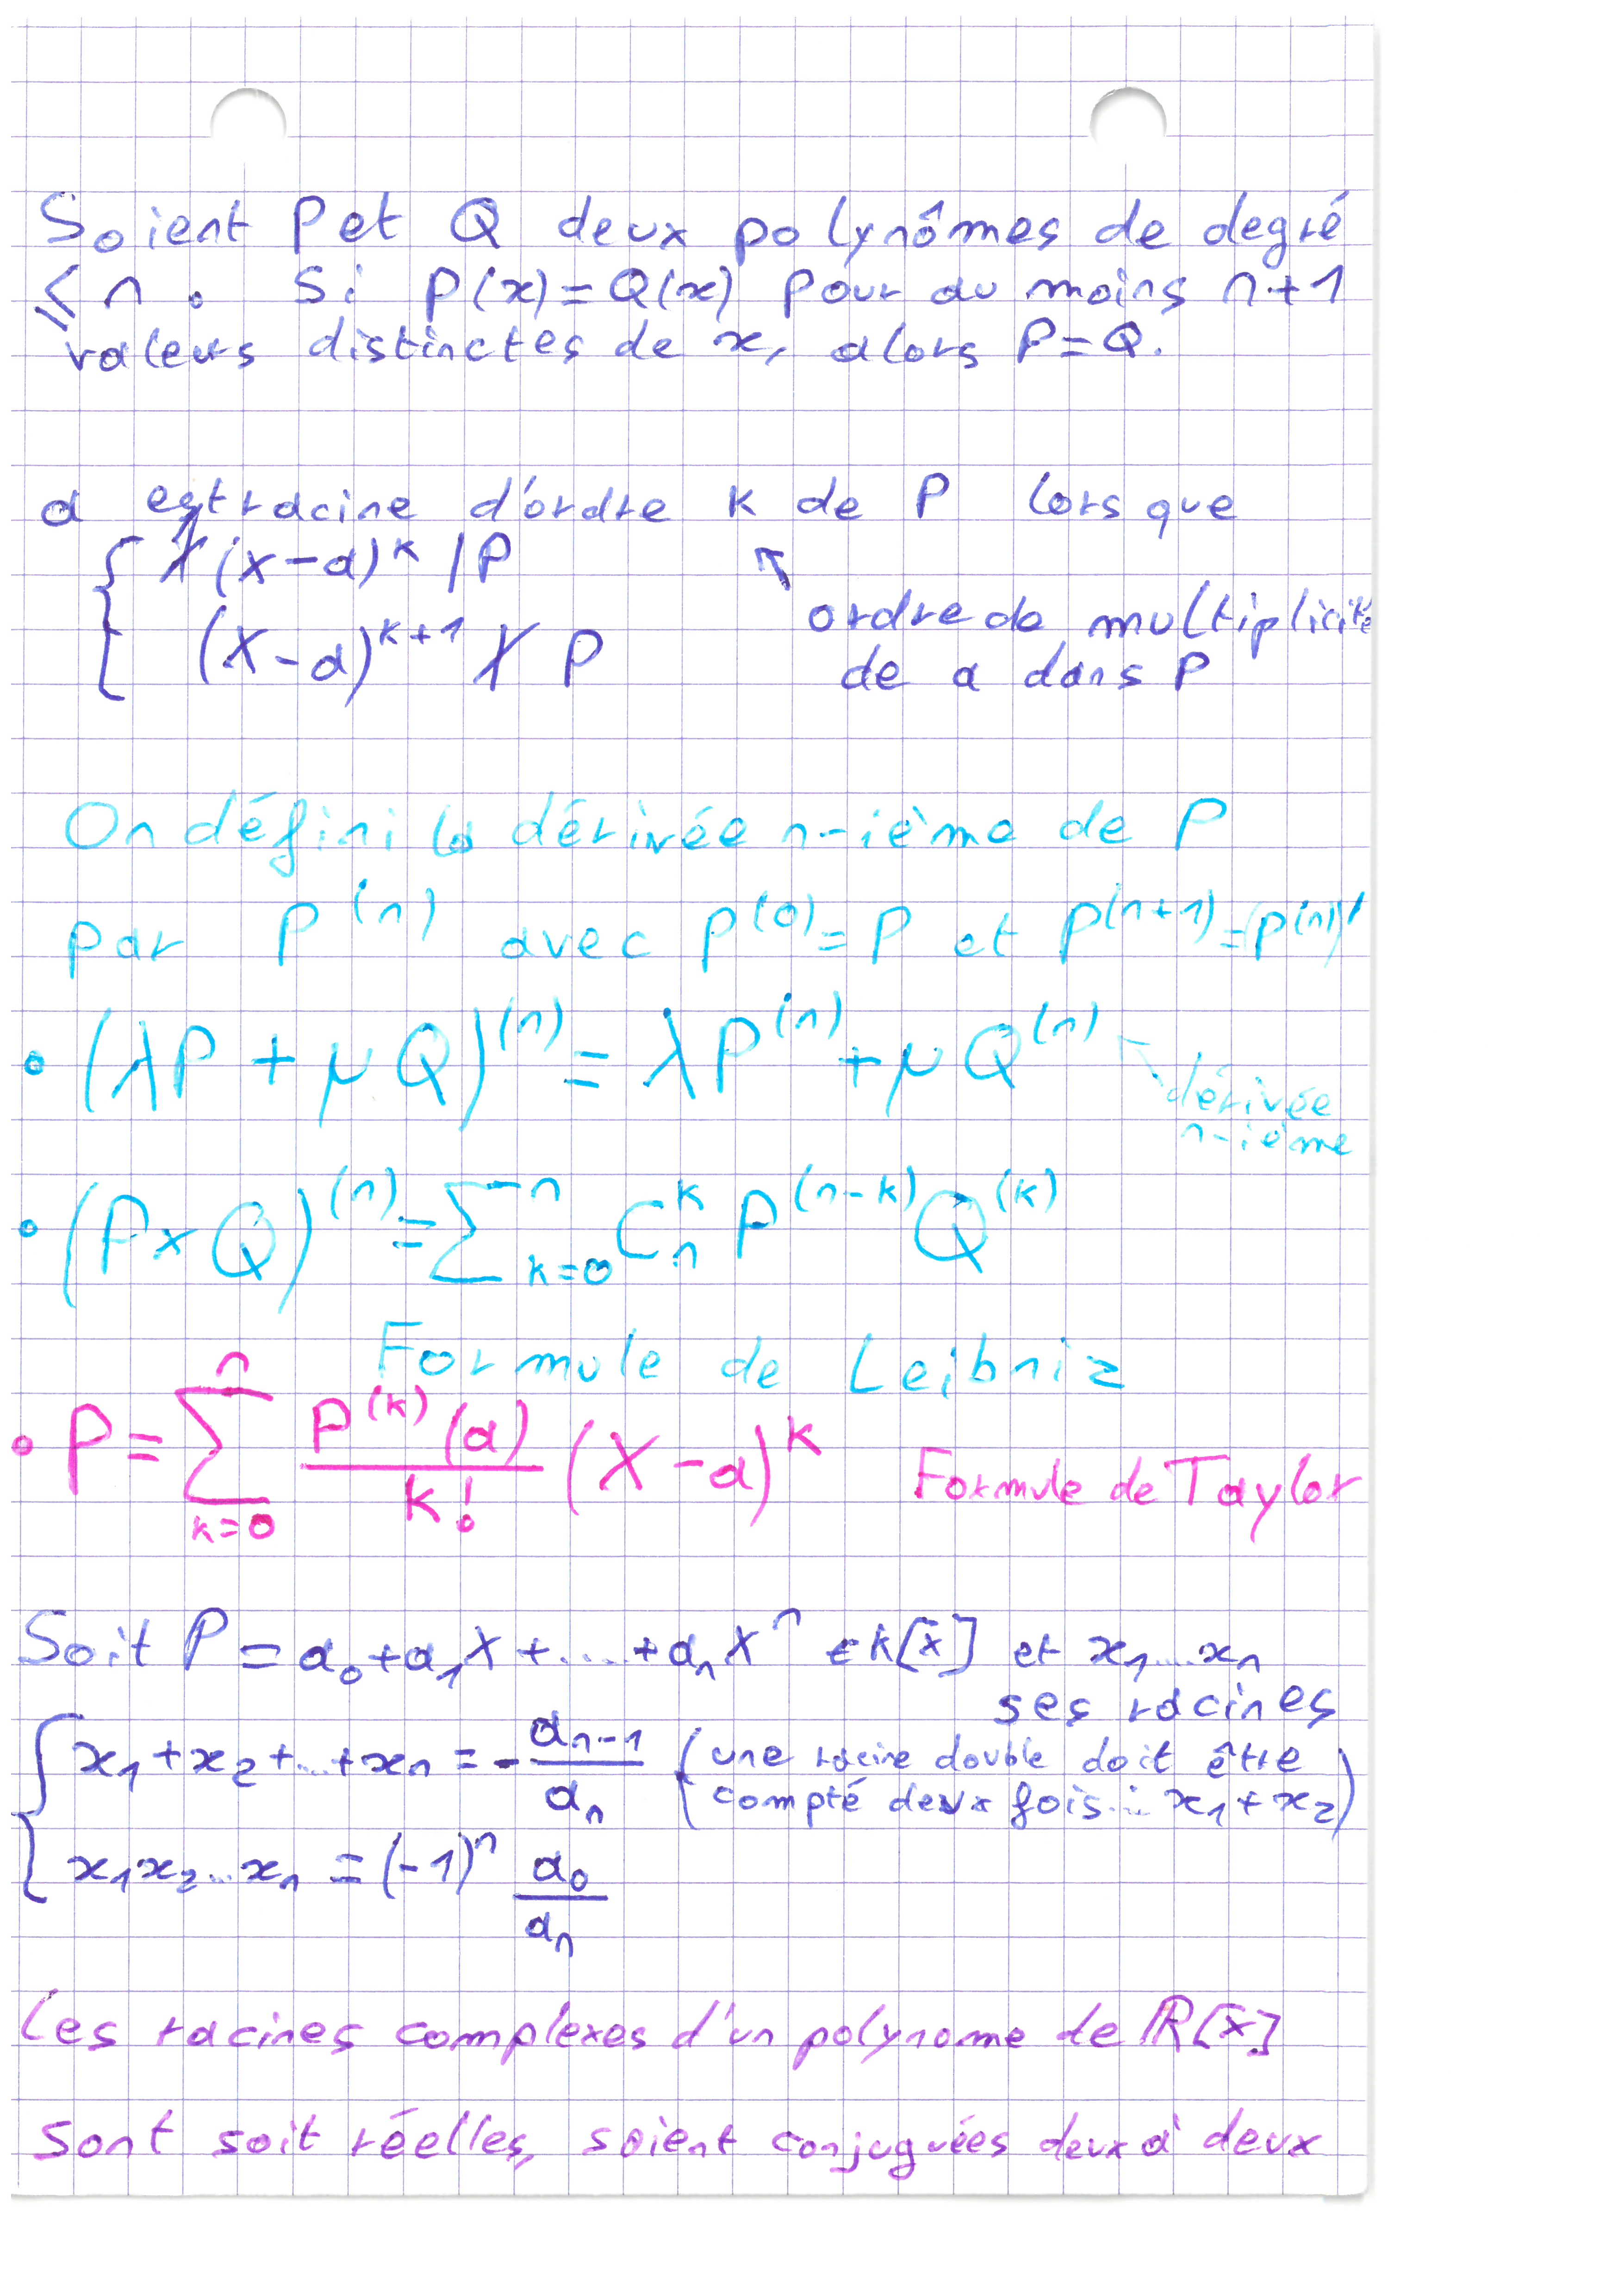 Soient P et Q deux polynômes de degré
≤ n. Si P(x)=Q(x) pour au moins n+1
valeurs distinctes de x, alors P=Q.
a est racine d'ordre k de P lorsque
{ (X-a)^k | P
(X-a)^{k+1} ∤ P
↖ ordre de multiplicité
de a dans P
On défini la dérivée n-ième de P
par P^{(n)} avec P^{(0)}=P et P^{(n+1)}=(P^{(n)})'
• (λP + μQ)^{(n)} = λP^{(n)} + μQ^{(n)}
↖ dérivée
n-ième
• (P×Q)^{(n)} = Σ_{k=0}^{n} C_n^k P^{(n-k)} Q^{(k)}
Formule de Leibniz
• P = Σ_{k=0}^{n} P^{(k)}(a)/k! (X-a)^k Formule de Taylor
Soit P = a_0+a_1X+....+a_nX^n ∈ K[X] et x_1...x_n
ses racines
{ x_1+x_2+...+x_n = - a_{n-1}/a_n (une racine double doit être
compté deux fois... x_1+x_2)
x_1x_2...x_n = (-1)^n a_0/a_n
Les racines complexes d'un polynome de ℝ[X]
sont soit réelles, soient conjuguées deux à deux